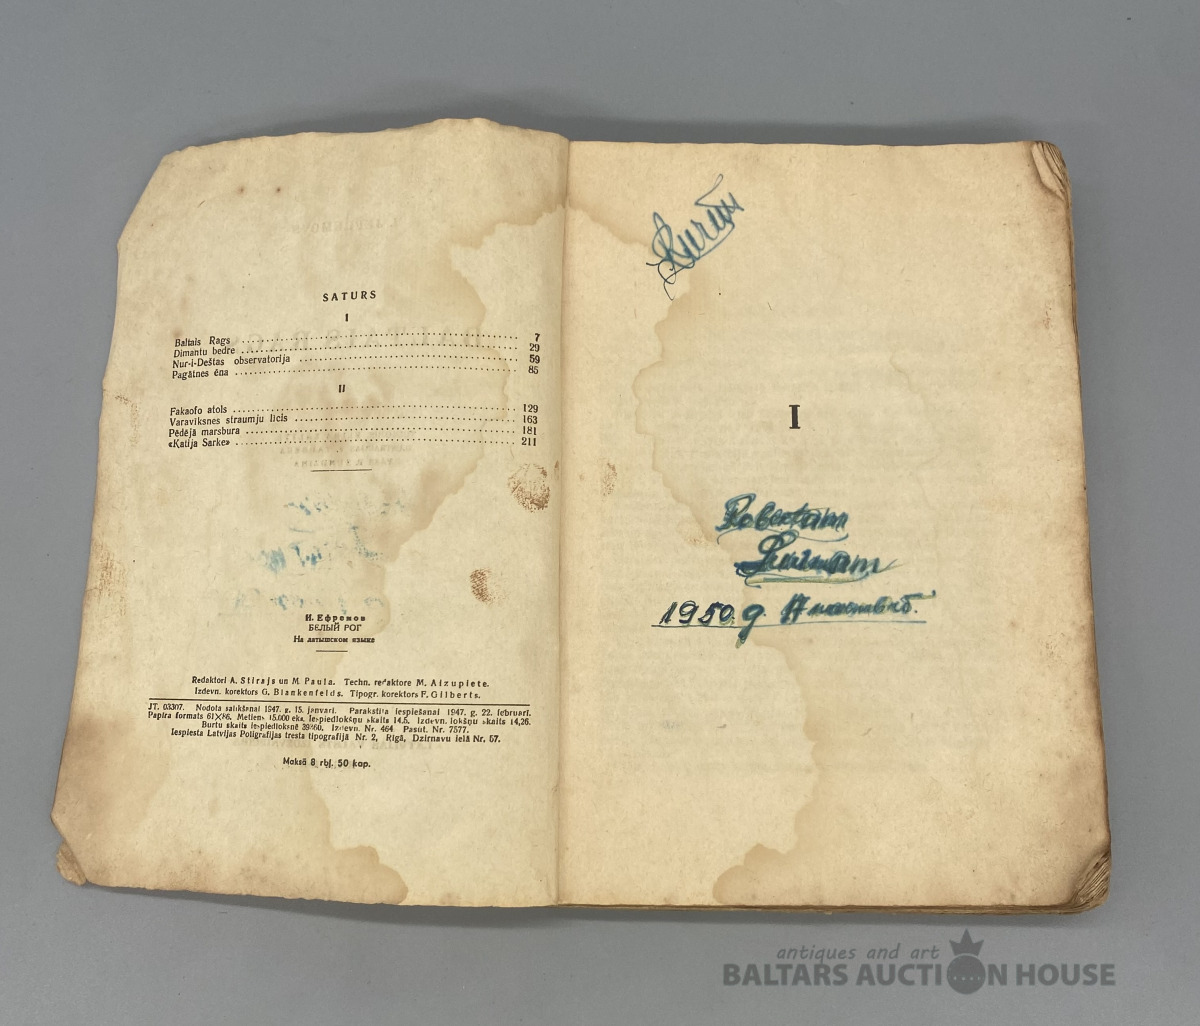 SATURS
I
Baltais Rags 7
Dimantu bedre 29
Nur-i-Deštas observatorija 59
Pagātnes ēna 85
II
Fakaofo atols 129
Varavīksnes straumju līcis 163
Pēdējā marsbura 181
«Katija Sarke» 211
И. Ефромов
БЕЛЫЙ РОГ
На латышском языке
Redaktori A. Stirajs un M. Paula. Techn. redaktore M. Aizupiete.
Izdevn. korektors G. Blankenfelds. Tipogr. korektors F. Gilberts.
JT. 03307. Nodota salikšanai 1947. g. 15. janvarī. Parakstīta iespiešanai 1947. g. 22. februarī.
Papira formats 61×86. Metiens 15.000 eks. Iespiedlokšņu skaits 14,5. Izdevn. lokšņu skaits 14,26.
Burtu skaits iespiedloksnē 39360. Izdevn. Nr. 464 Pasūt. Nr. 7577.
Iespiesta Latvijas Poligrafijas tresta tipografijā Nr. 2, Rīgā, Dzirnavu ielā Nr. 57.
Maksā 8 rbļ. 50 kap.
I
Robertam
1950. g. 17
antiques and art
BALTARS AUCTION HOUSE